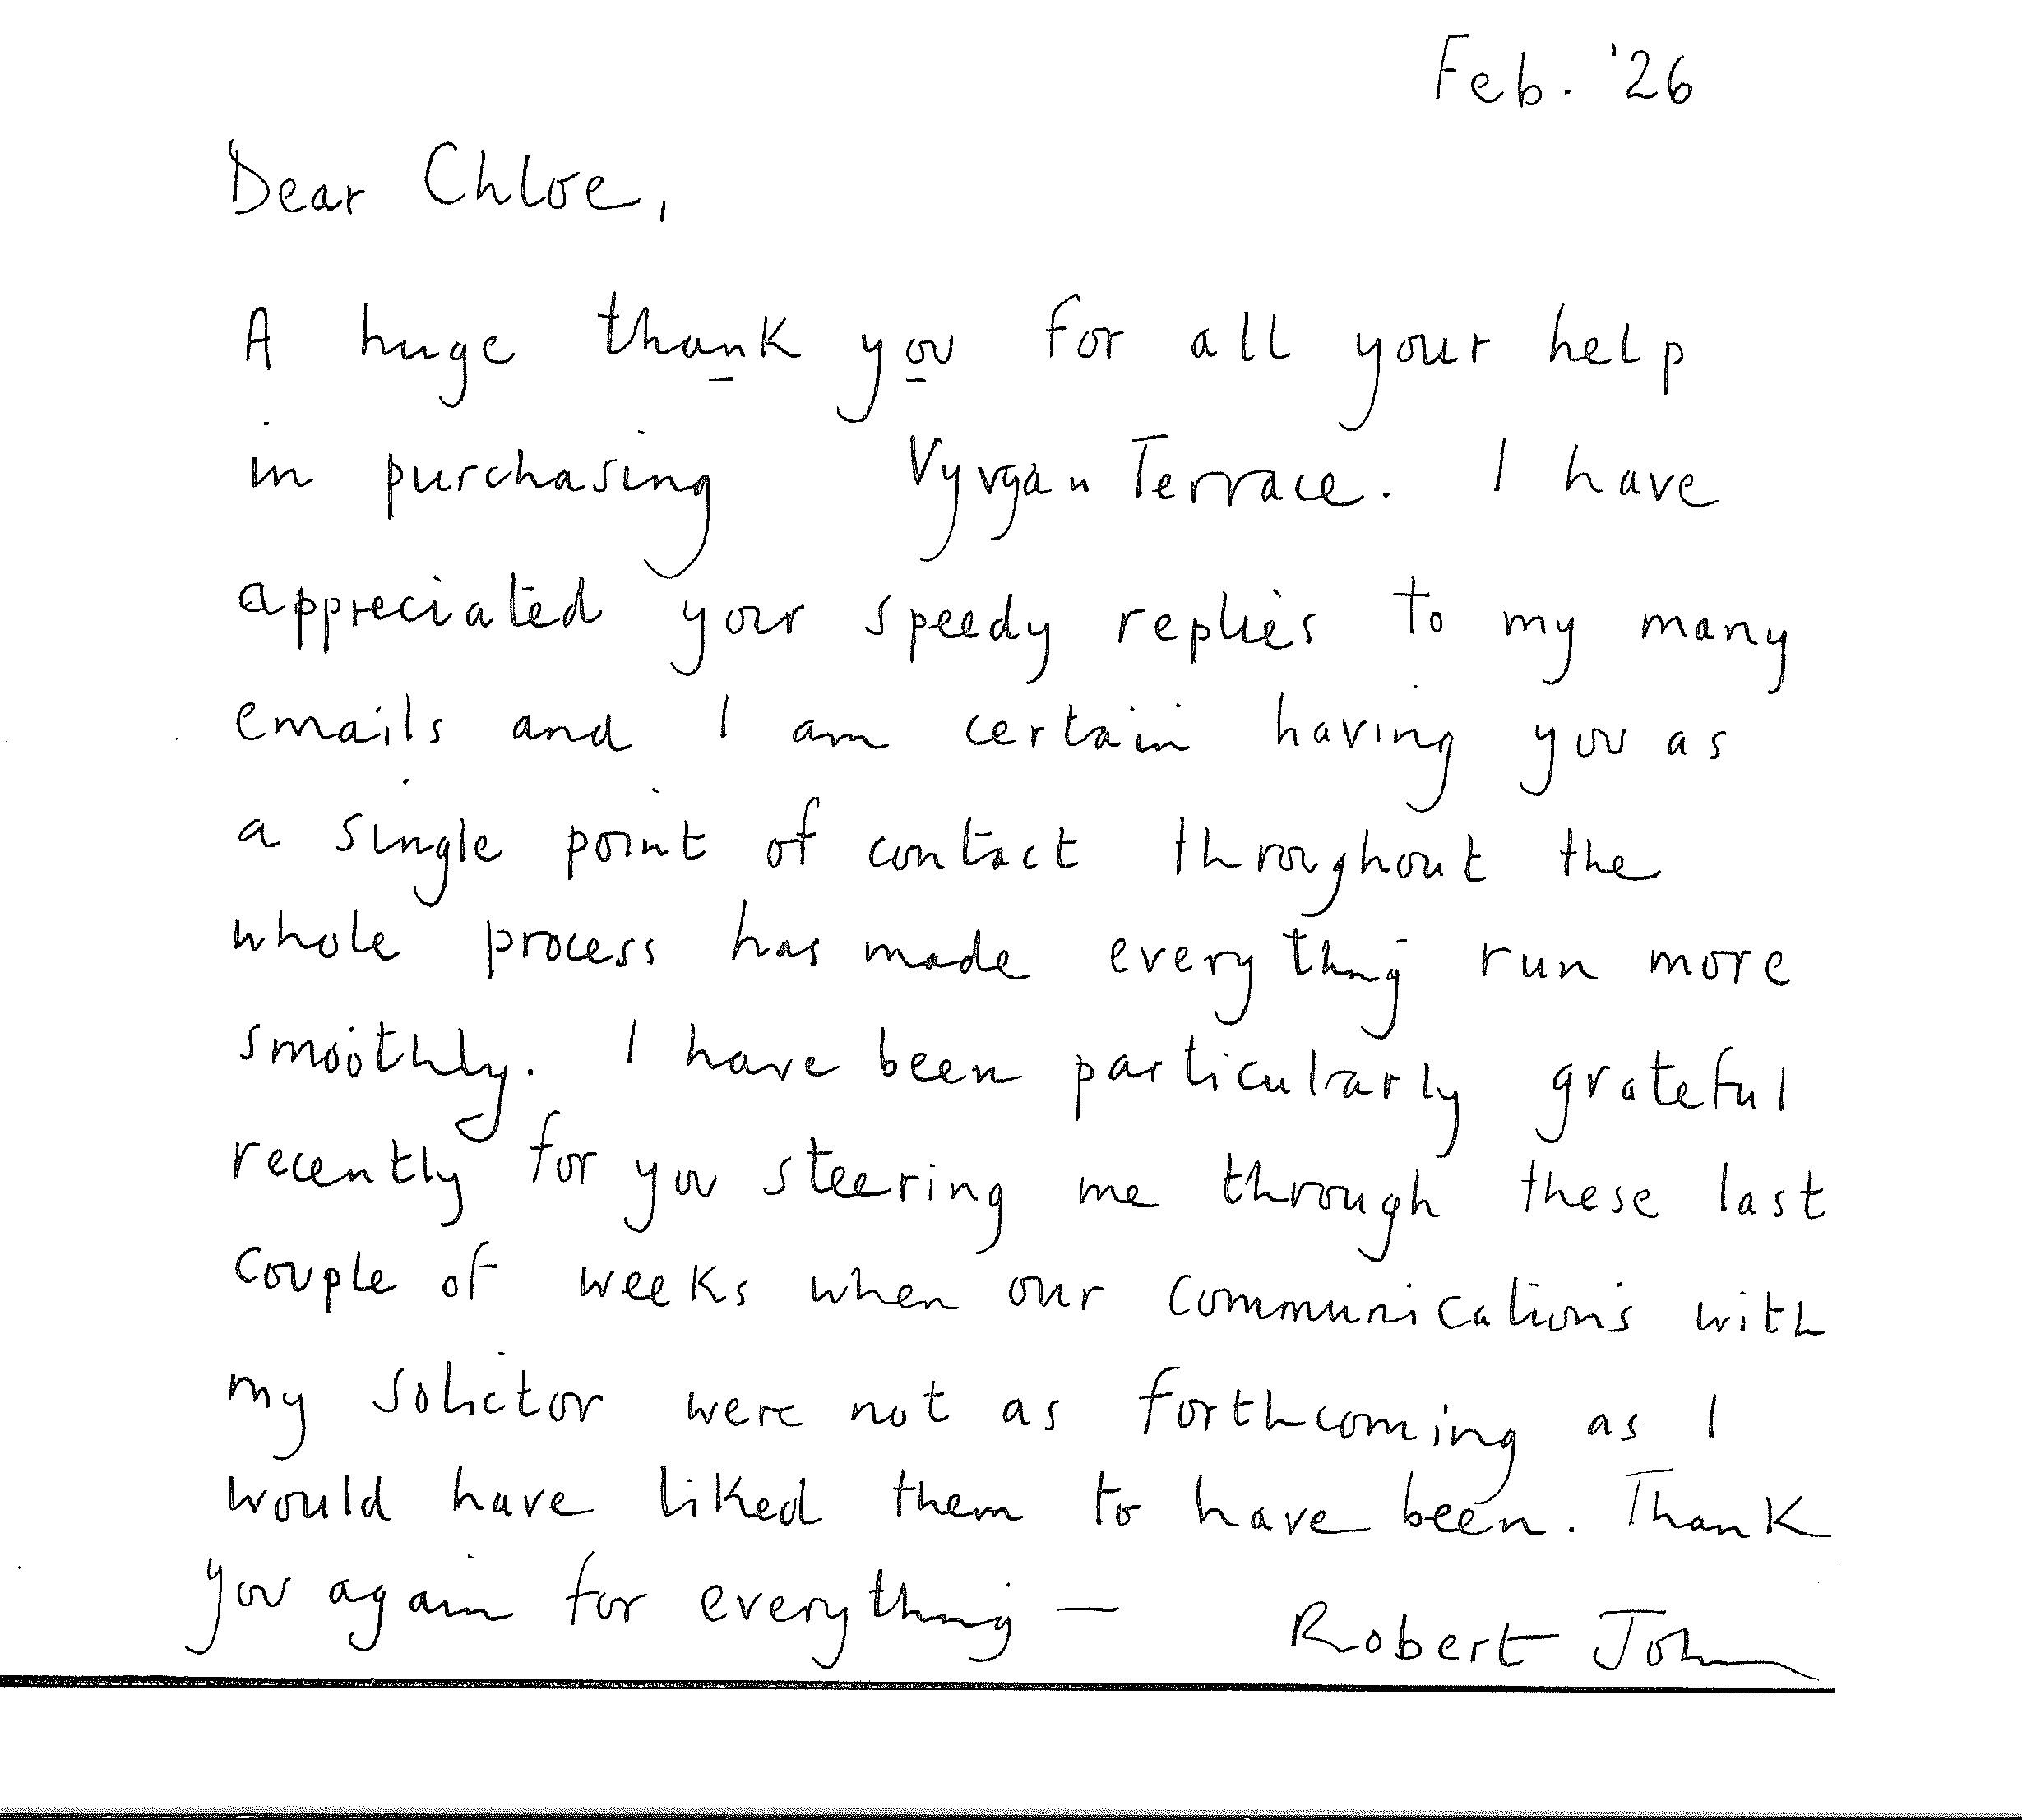 Feb. '26
Dear Chloe,
A huge thank you for all your help
in purchasing Vyvyan Terrace. I have
appreciated your speedy replies to my many
emails and I am certain having you as
a single point of contact throughout the
whole process has made everything run more
smoothly. I have been particularly grateful
recently for you steering me through these last
couple of weeks when our communications with
my solicitor were not as forthcoming as I
would have liked them to have been. Thank
you again for everything — Robert John